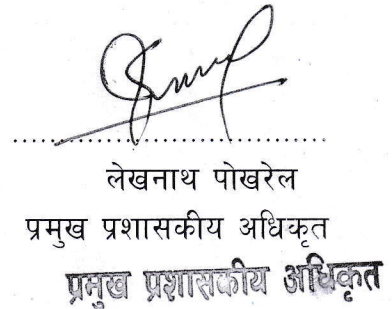 लेखनाथ पोखरेल
प्रमुख प्रशासकीय अधिकृत
प्रमुख प्रशासकीय अधिकृत